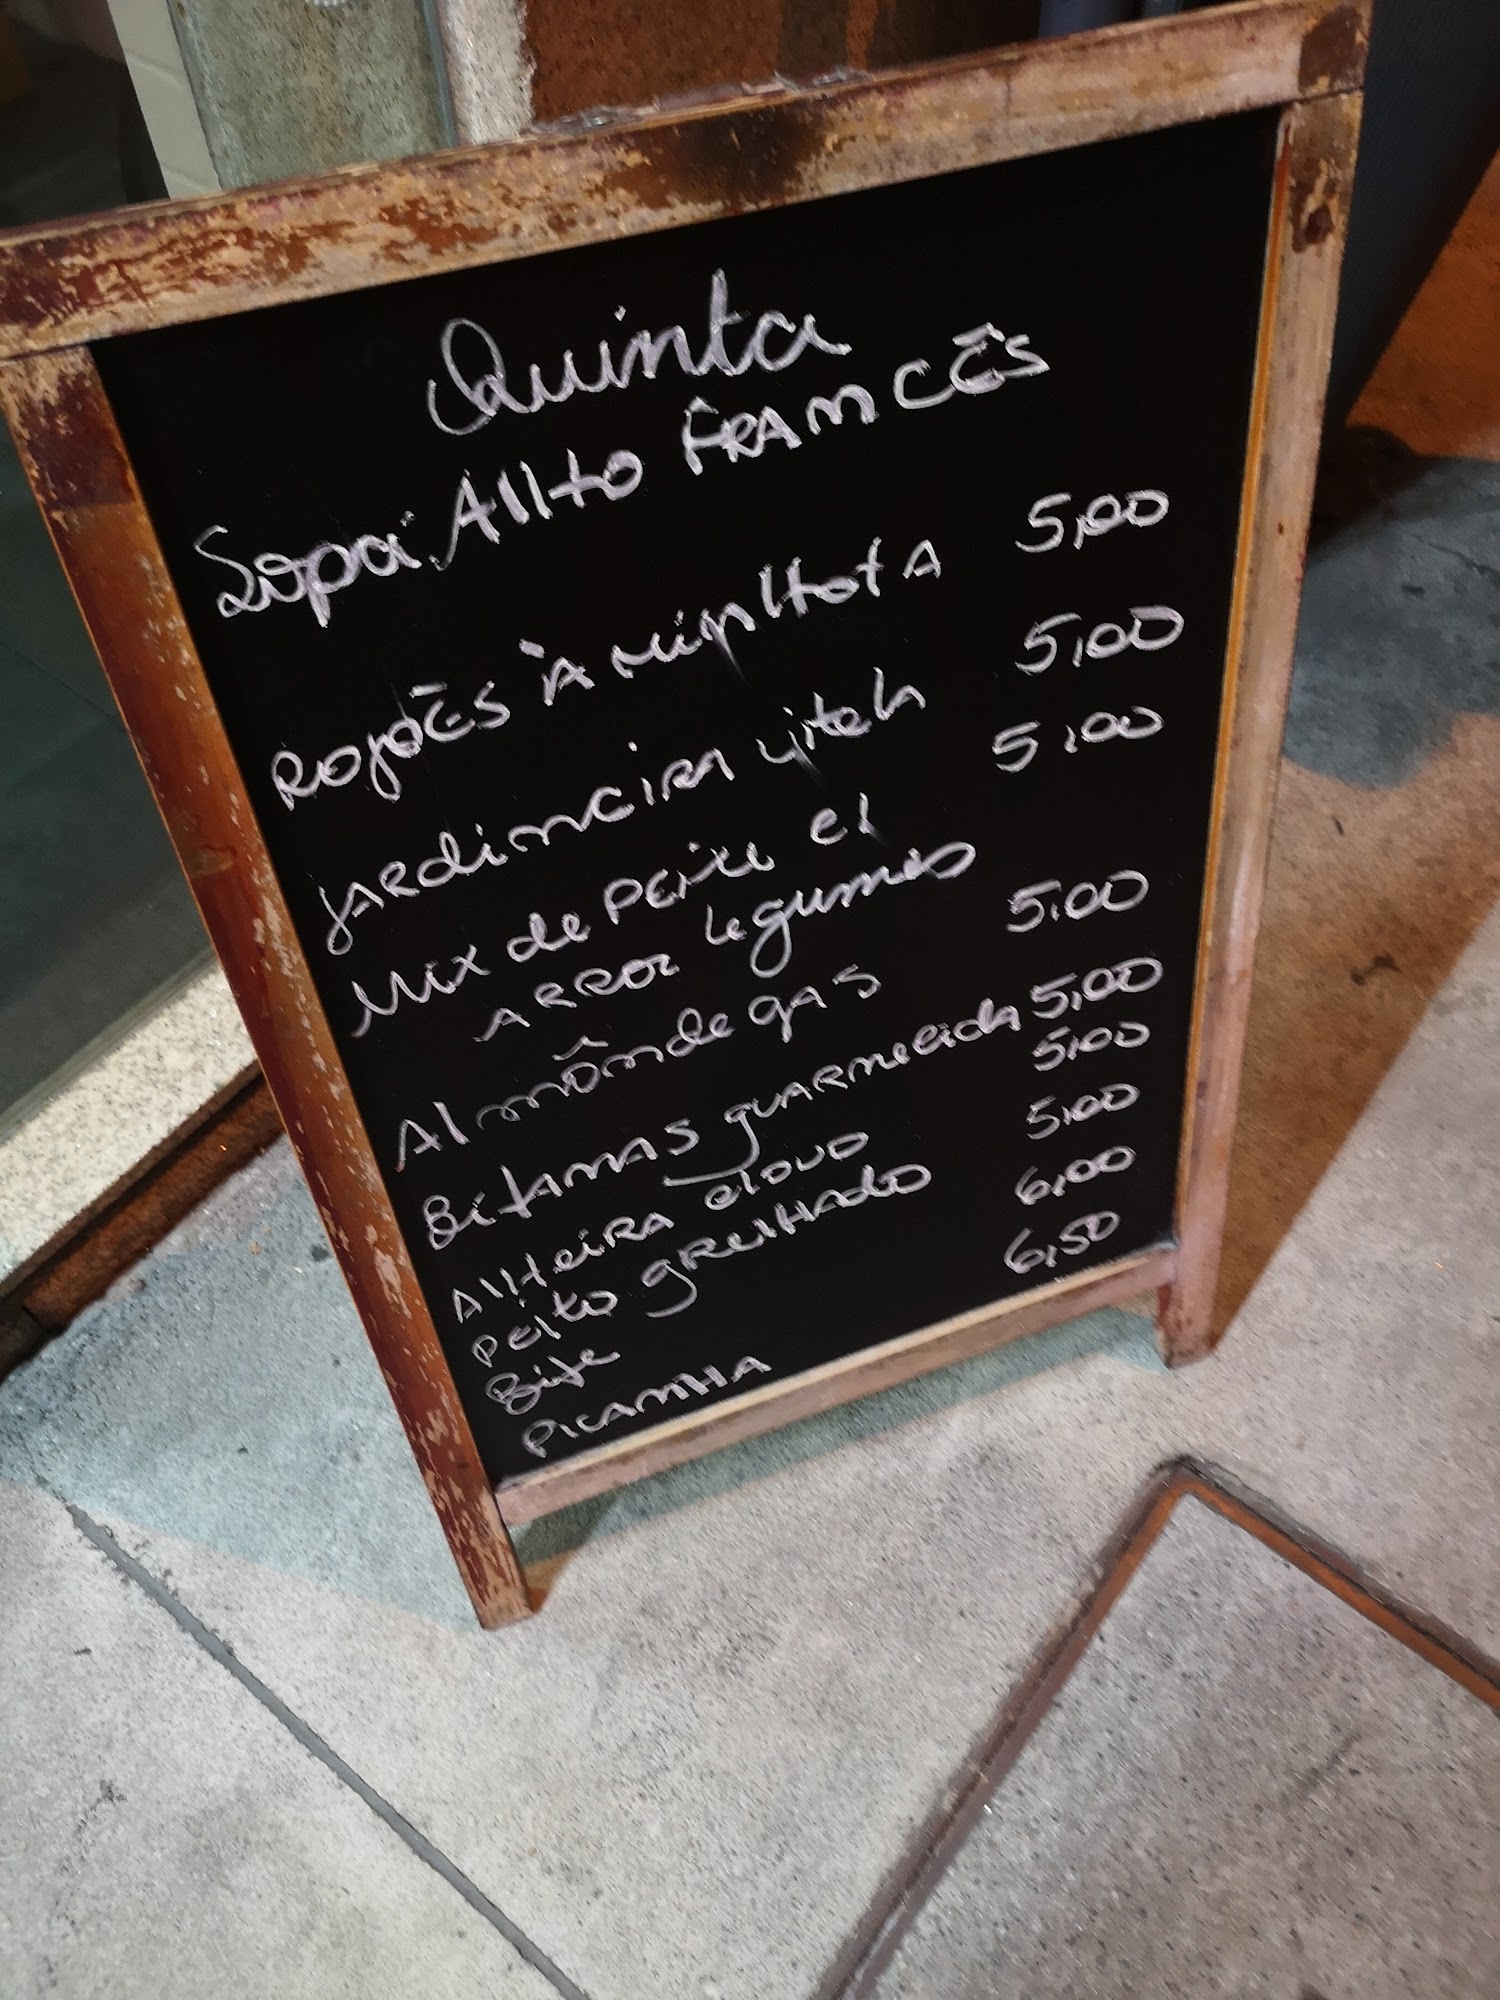 Quinta
Sopa: Alho FRANCÊS
ROJÕES À MINHOTA 5,00
JARDINEIRA vitela 5,00
Mix de PEixe c/ 5,00
ARROZ legumes
Almôndegas 5,00
BITANAS guARNecida 5,00
AlHeiRA c/ovo 5,00
peito gRelHAdo 5,00
Bife 6,00
PICANHA 6,50